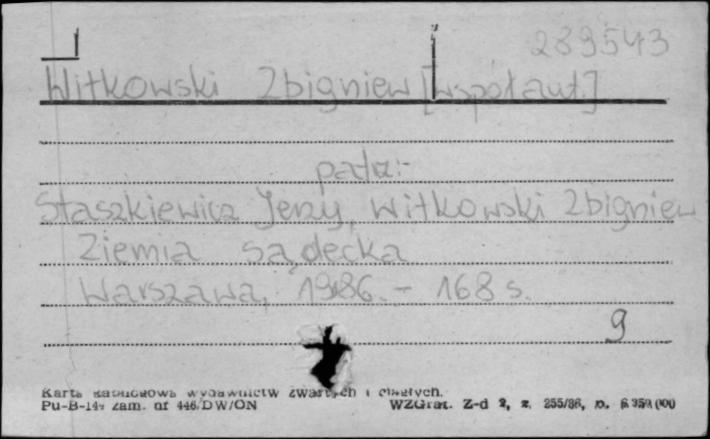 239543
Witkowski Zbigniew [współaut.]
patrz:
Staszkiewicz Jerzy, Witkowski Zbigniew
Ziemia sądecka
Warszawa, 1986. - 168 s.
9
Karta katalogowa wydawnictw zwartych i ciągłych.
Pu-B-149 zam. nr 446/DW/ON WZGraf. Z-d 2, z. 255/86, n.